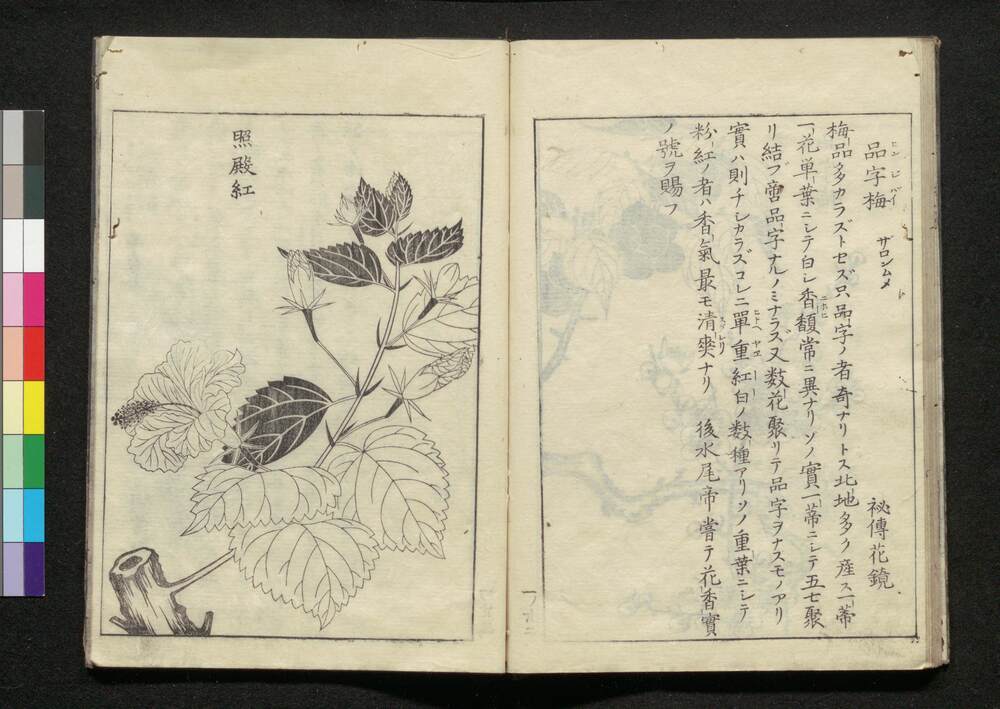 品字梅 ヒンジバイ ザロンムメ 秘傳花鏡
梅品多カラズトセズ只品字ノ者奇ナリトス北地多ク産ス一蔕
一花単葉ニシテ白シ香馥常ニ異ナリソノ實一蔕ニシテ五七聚
リ結ブ啻品字ナルノミナラズ又数花聚リテ品字ヲナスモノアリ
實ハ則チシカラズコレニ單重紅白ノ数種アリソノ重葉ニシテ
粉紅ノ者ハ香氣最モ清爽ナリ 後水尾帝嘗テ花香實
ノ號ヲ賜フ
照殿紅